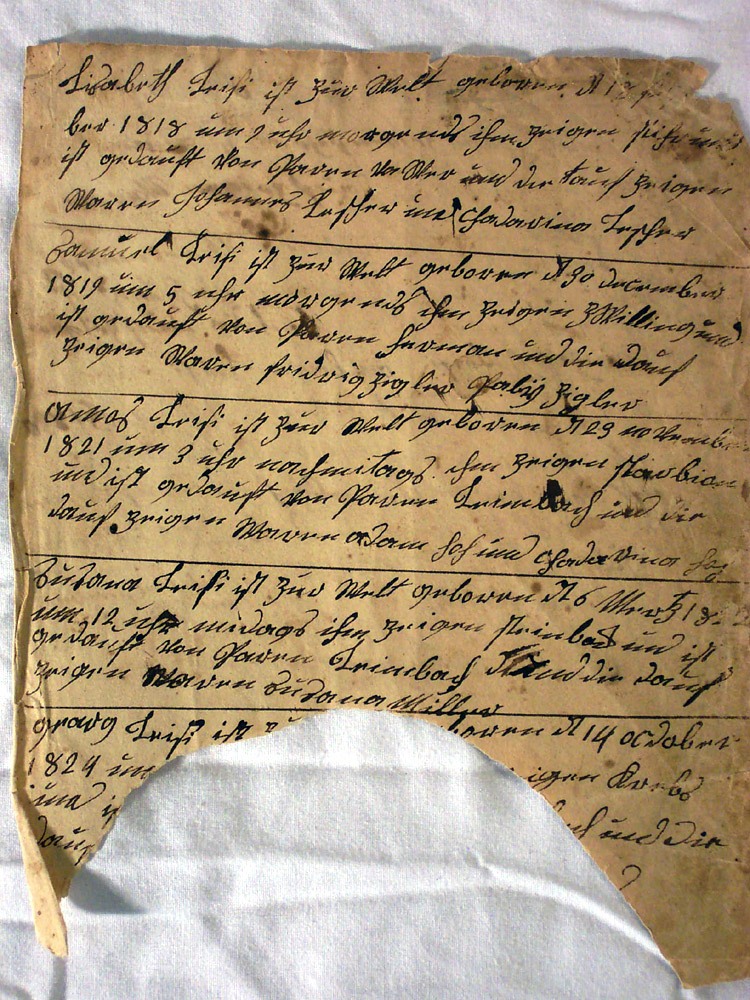 Lisabeth Leisi ist zur Welt geboren d 13
ber 1818 um 2 uhr morgends ihm zeigen fische und
ist gedauft von Paren und die tauf zeigen
Waren Johannes Lescher und Chadarina Lescher
Samuel Leisi ist zur Welt geboren d 30 december
1819 um 5 uhr morgends ihm zeigen zWilling und
ist gedauft von Paren herman und die dauf
zeigen Waren fridrig zigler Pally zigler
amos Leisi ist zur Welt geboren d 29 november
1821 um 3 uhr nachmitags ihm zeigen skorbion
und ist gedauft von Paren Leimbach und die
dauf zeigen Waren adam und Chadarina
Susana Leisi ist zur Welt geboren d 6 Mertz 18
um 12 uhr midags ihm zeigen steinbock und ist
gedauft von Paren Leimbach und die dauf
zeigen Waren Susana Miller
georg Leisi ist boren d 14 october
1824 um eigen Krebs
und ist und die
dauf